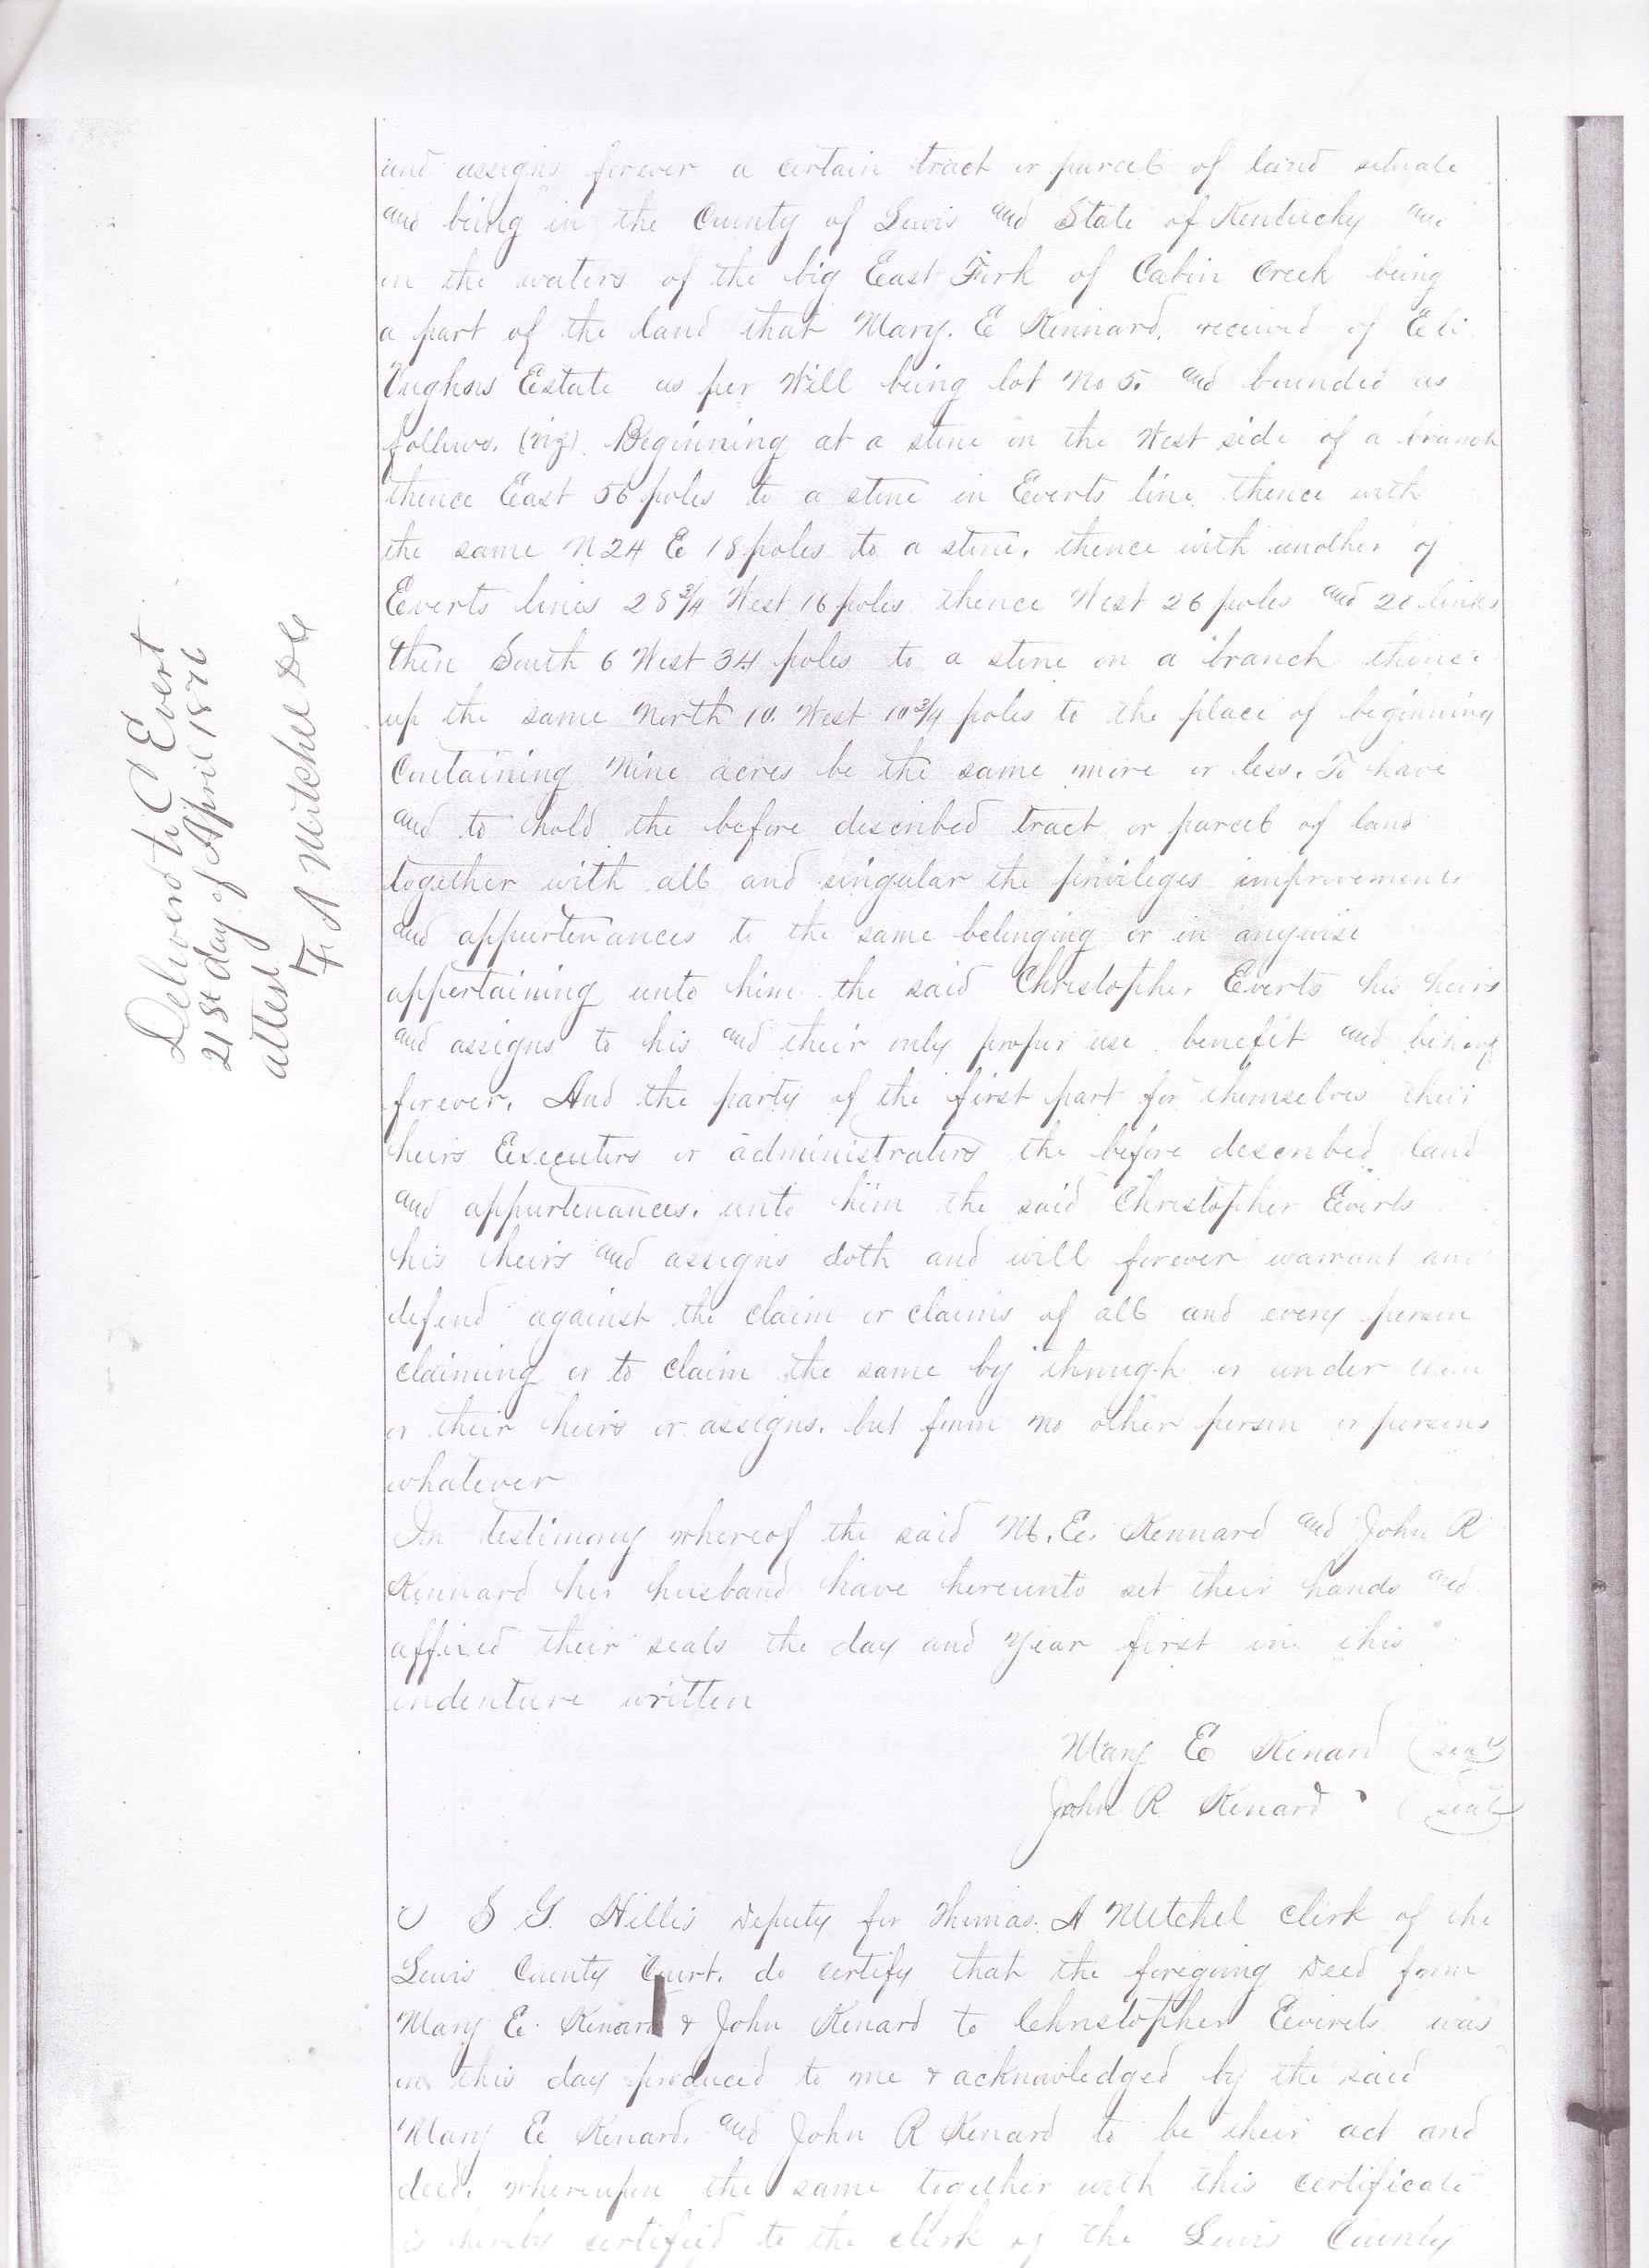 and assigns forever a certain tract or parcel of land situate
and being in the County of Lewis and State of Kentucky and
on the waters of the big East Fork of Cabin Creek being
a part of the land that Mary. E Kennard. received of Eli
Vughns Estate as per Will being lot No 5. and bounded as
follows. (viz). Beginning at a stone on the West side of a branch
thence East 56 poles to a stone in Everts line thence with
the same N 24 E 18 poles to a stone. thence with another of
Everts lines 28 3/4 West 16 poles thence West 26 poles and 20 links
then South 6 West 34 poles to a stone on a branch thence
up the same North 10. West 10 3/4 poles to the place of beginning
Containing Nine acres be the same more or less. To have
and to hold the before described tract or parcel of land
together with all and singular the privileges improvements
and appurtenances to the same belonging or in anywise
appertaining unto him the said Christopher Everts his heirs
and assigns to his and their only proper use benefit and behoof
forever. And the party of the first part for themselves their
heirs Executors or administrators the before described land
and appurtenances. unto him the said Christopher Everts
his heirs and assigns doth and will forever warrant and
defend against the claim or claims of all and every person
claiming or to claim the same by through or under them
or their heirs or assigns. but from no other person or persons
whatever
In testimony whereof the said M. E. Kennard and John R
Kennard her husband have hereunto set their hands and
affixed their seals the day and Year first in this
indenture written
Mary E Kenard (seal)
John R Kenard (seal)
Delivered to C Evert
21st day of April 1876
attest
T A Mitchel D C
I S G. Hillis Deputy for Thomas. A Mitchel Clerk of the
Lewis County Court. do certify that the foregoing Deed from
Mary E. Kenard & John Kenard to Christopher Everets was
on this day produced to me & acknowledged by the said
Mary E Kenard. and John R Kenard to be their act and
deed. whereupon the same together with this certificate
is hereby certified to the clerk of the Lewis County